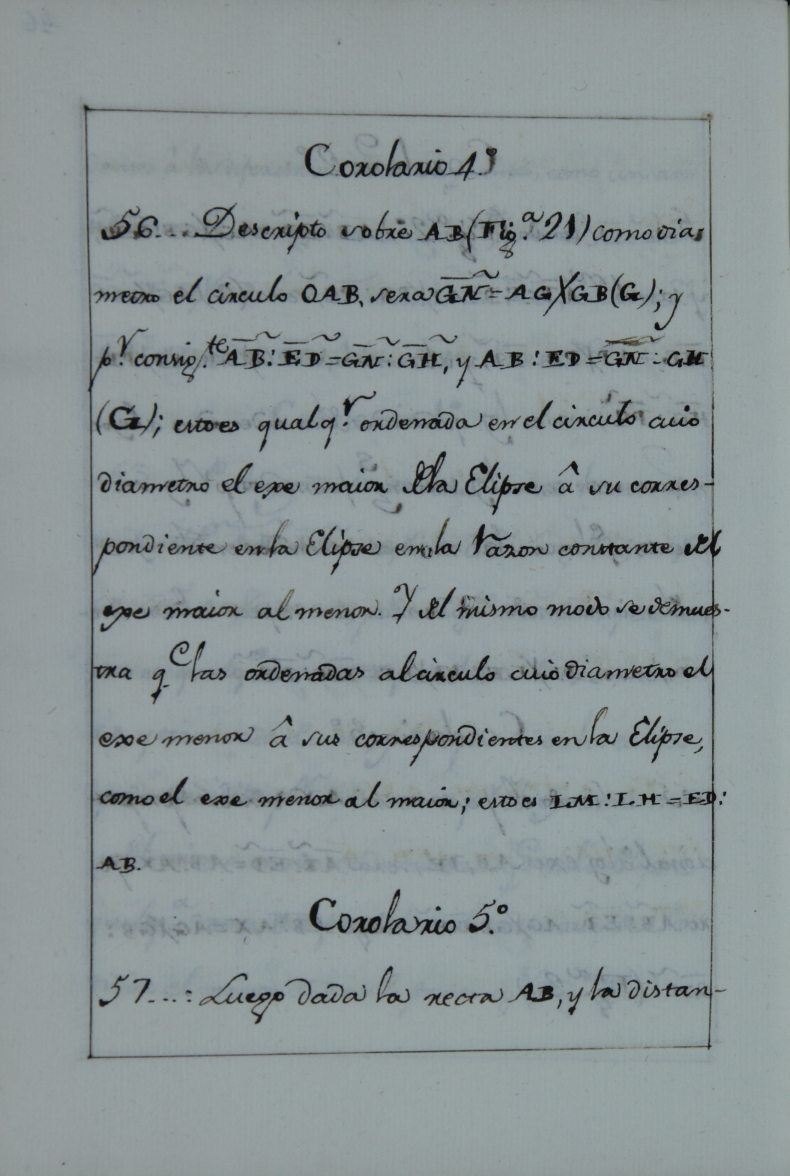 Corolario 4.º
56... Descripto sobre AB (Fig.ª 21) como dia,
metro el circulo OAB, sera G̅N̅~ = AG X GB (G); y
p.r consig.te A̅B̅~ : E̅D̅~ = G̅N̅~ : G̅H̅~, y AB : ED = GN : GH
(G); esto es qualq.r ordenada en el circulo cuio
diametro el exe maior dela Elipse â su corres-
pondiente en la Elipse en la razon constante del
exe maior al menor. Y del mismo modo se demues-
tra q.e las ordenadas al circulo cuio diametro el
exe menor â sus correspondientes en la Elipse,
como el exe menor al maior; esto es LM : LH = ED :
AB.
Corolario 5.º
57...: Luego dada la recta AB, y la distan-